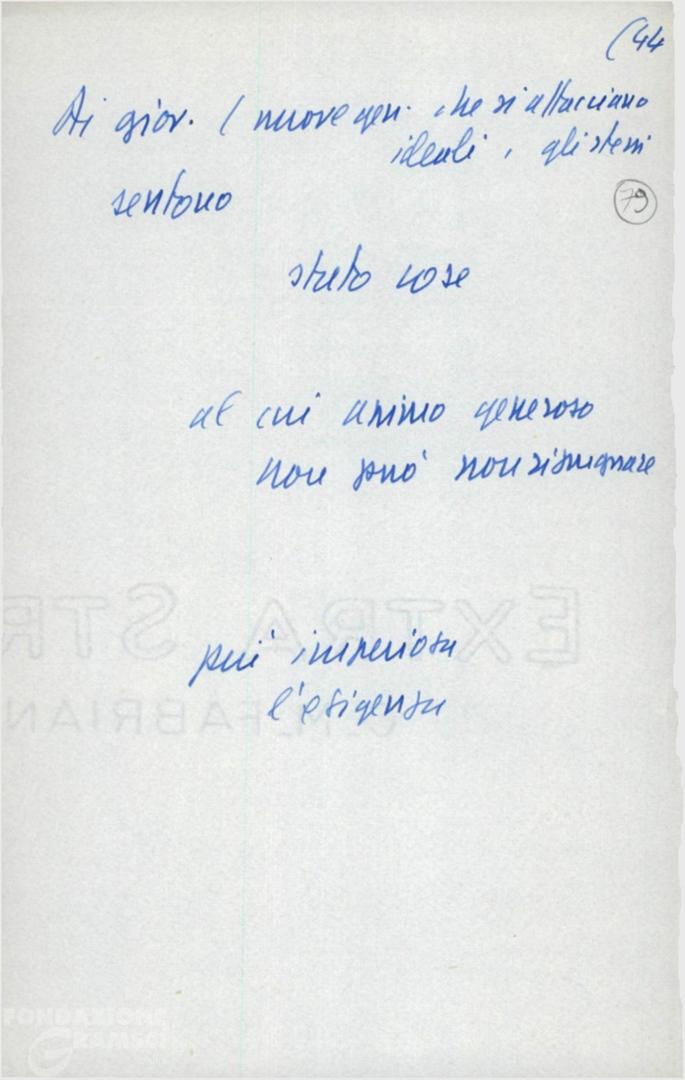 (44
Ai giov. / nuove gen. che si affacciano
ideali, gli stessi
sentono
79
stato cose
al cui animo generoso
non può non ripugnare
più imperiosa
l'esigenza
EXTRA STR
FABRIAN
FONDAZIONE
GRAMSCI